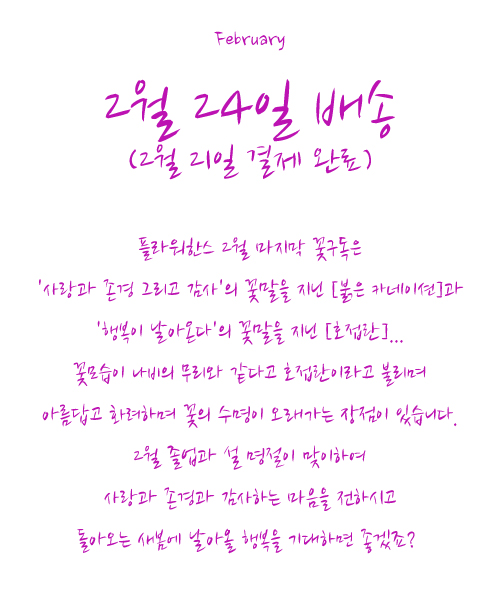 February
2월 24일 배송
(2월 21일 결제 완료)
플라워한스 2월 마지막 꽃구독은
'사랑과 존경 그리고 감사'의 꽃말을 지닌 [붉은 카네이션]과
'행복이 날아온다'의 꽃말을 지닌 [호접란]...
꽃모습이 나비의 무리와 같다고 호접란이라고 불리며
아름답고 화려하며 꽃의 수명이 오래가는 장점이 있습니다.
2월 졸업과 설 명절이 맞이하여
사랑과 존경과 감사하는 마음을 전하시고
돌아오는 새봄에 날아올 행복을 기대하면 좋겠죠?